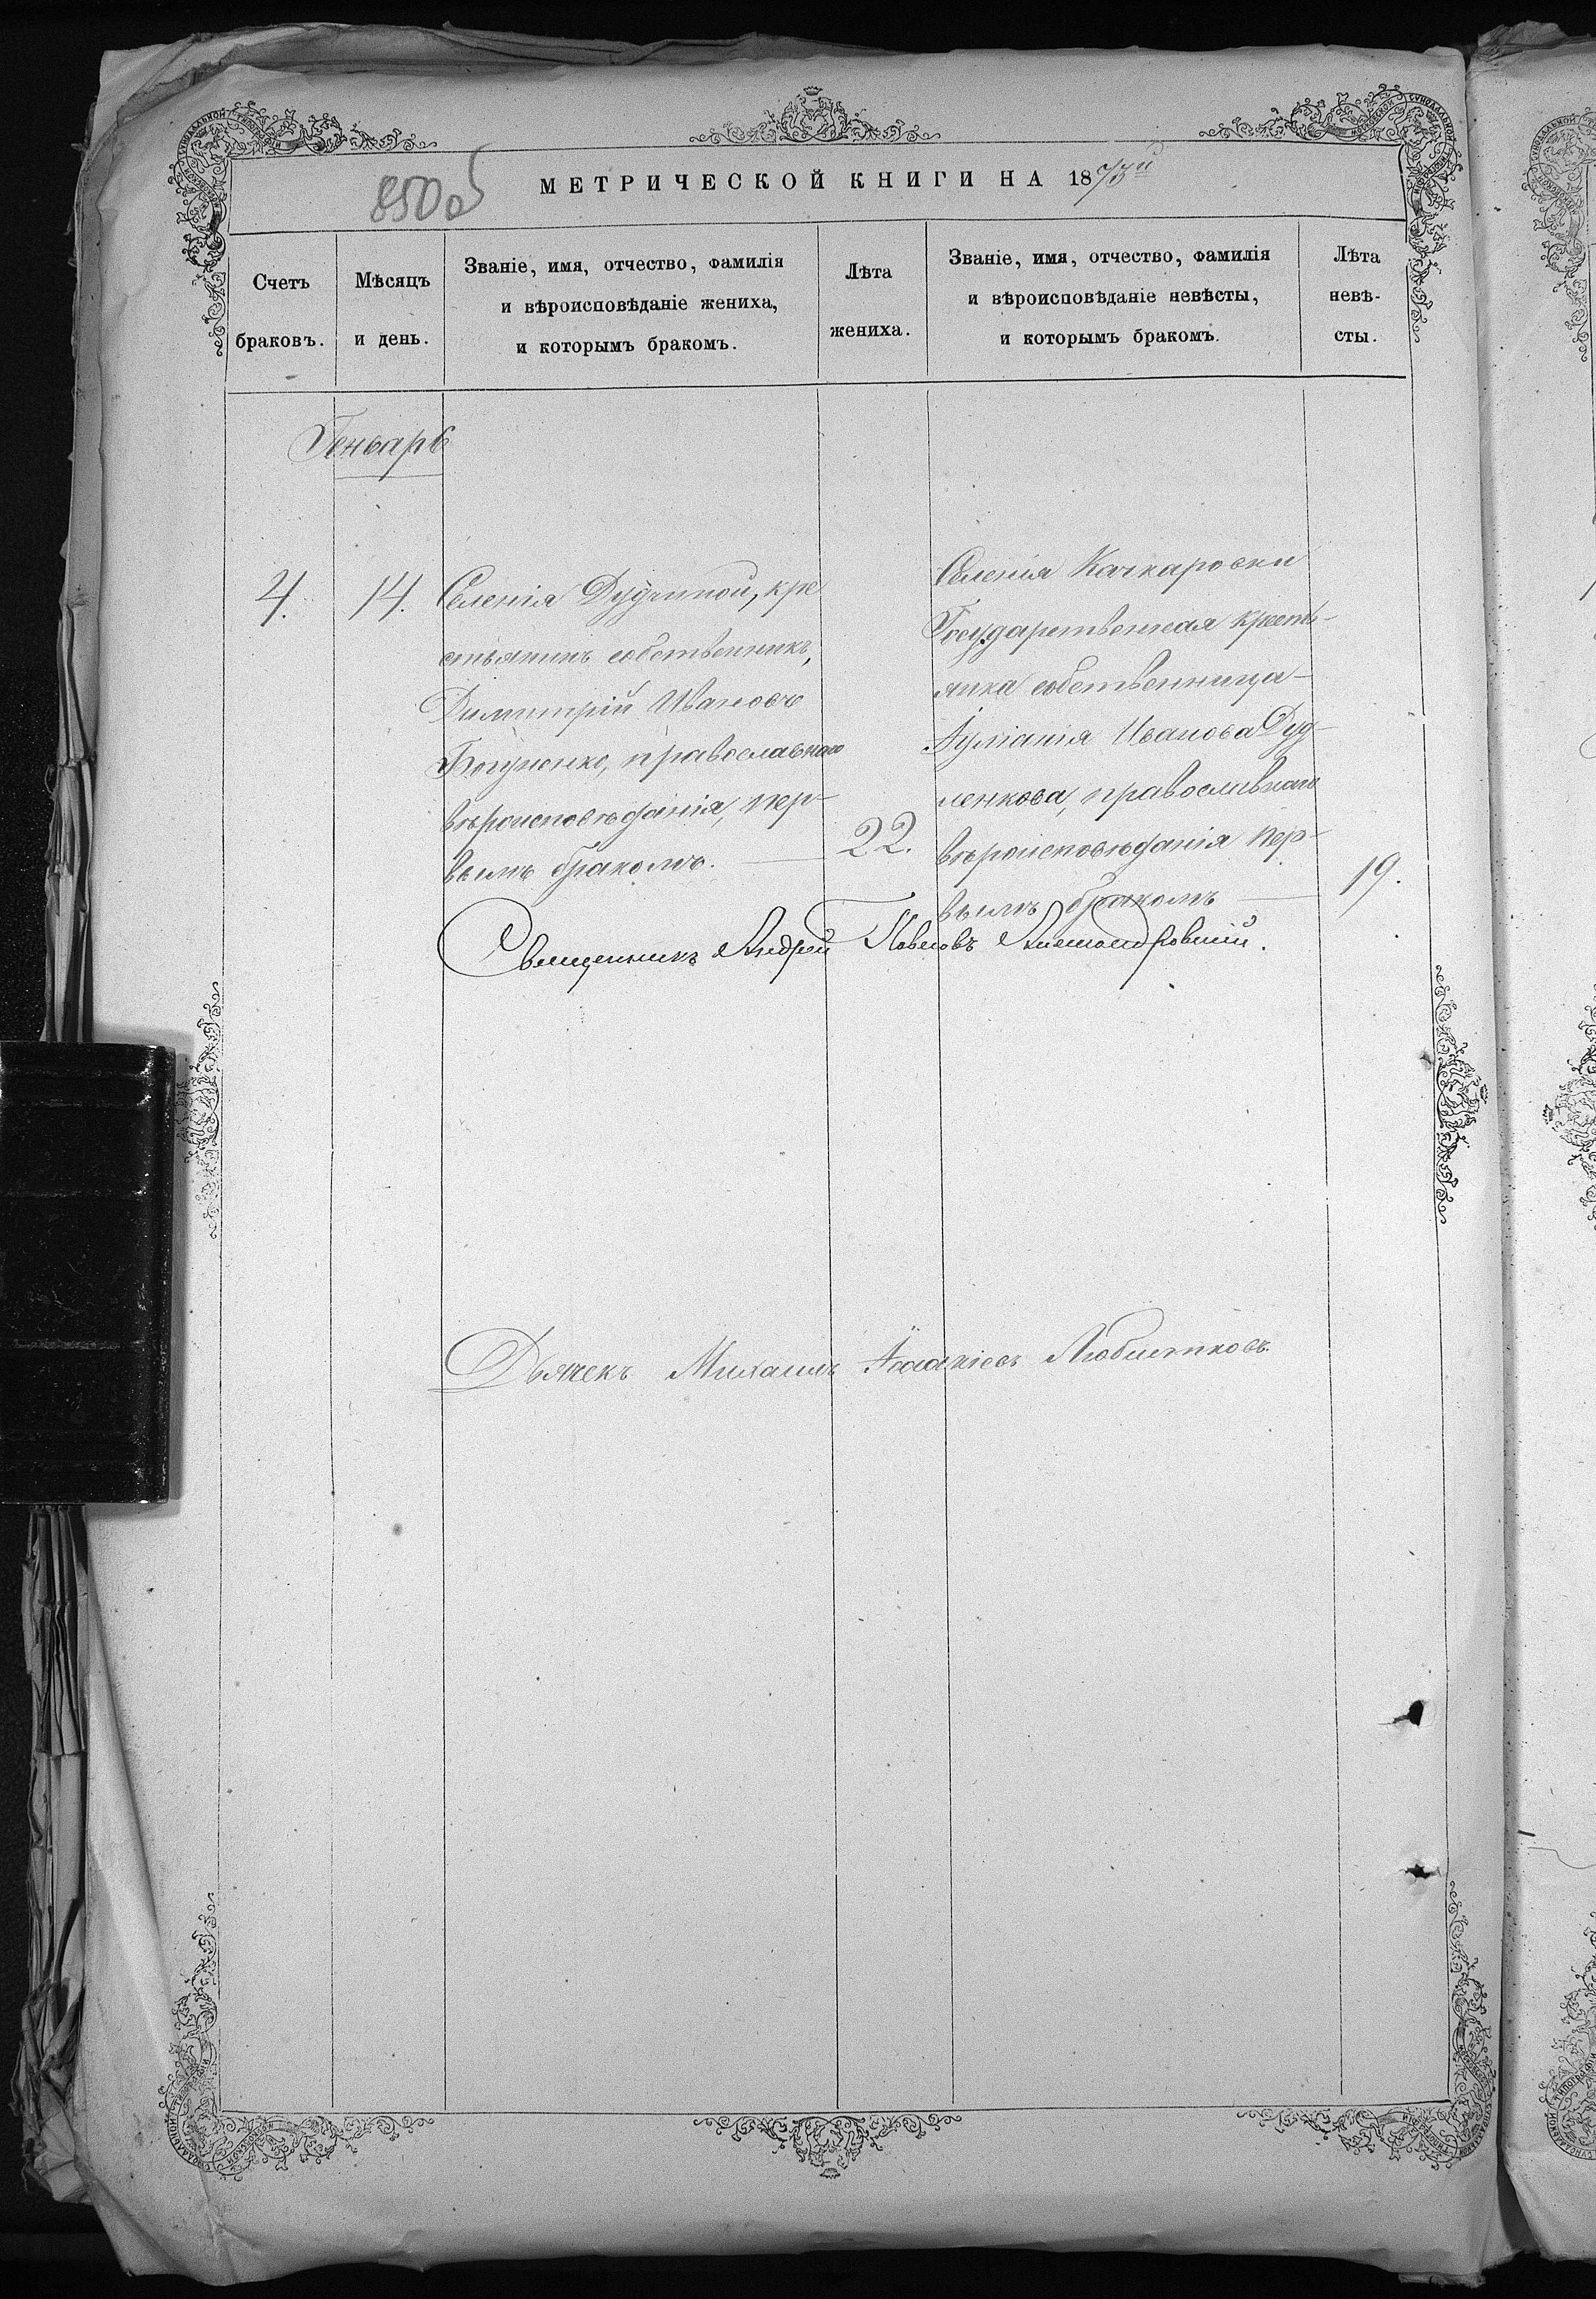 850 об
МЕТРИЧЕСКОЙ КНИГИ НА 1873й
Счетъ браковъ.
Мѣсяцъ и день.
Званіе, имя, отчество, фамилія
и вѣроисповѣданіе жениха,
и которымъ бракомъ.
Лѣта жениха.
Званіе, имя, отчество, фамилія
и вѣроисповѣданіе невѣсты,
и которымъ бракомъ.
Лѣта невѣ-
сты.
Генварь
4.
14.
Селенія Дудчиной, кре
стьянинъ собственникъ,
Димитрій Ивановъ
православнаго
вѣроисповѣданія, пер-
вымъ бракомъ.
22.
Селенія Качкаровки
Государственная кресть-
янка собственница
Іуліанія Иванова Дуд-
ленкова, православнаго
вѣроисповѣданія пер-
вымъ бракомъ
19.
Священникъ Андрей Павловъ Александровскій.
Дьячекъ Михаилъ